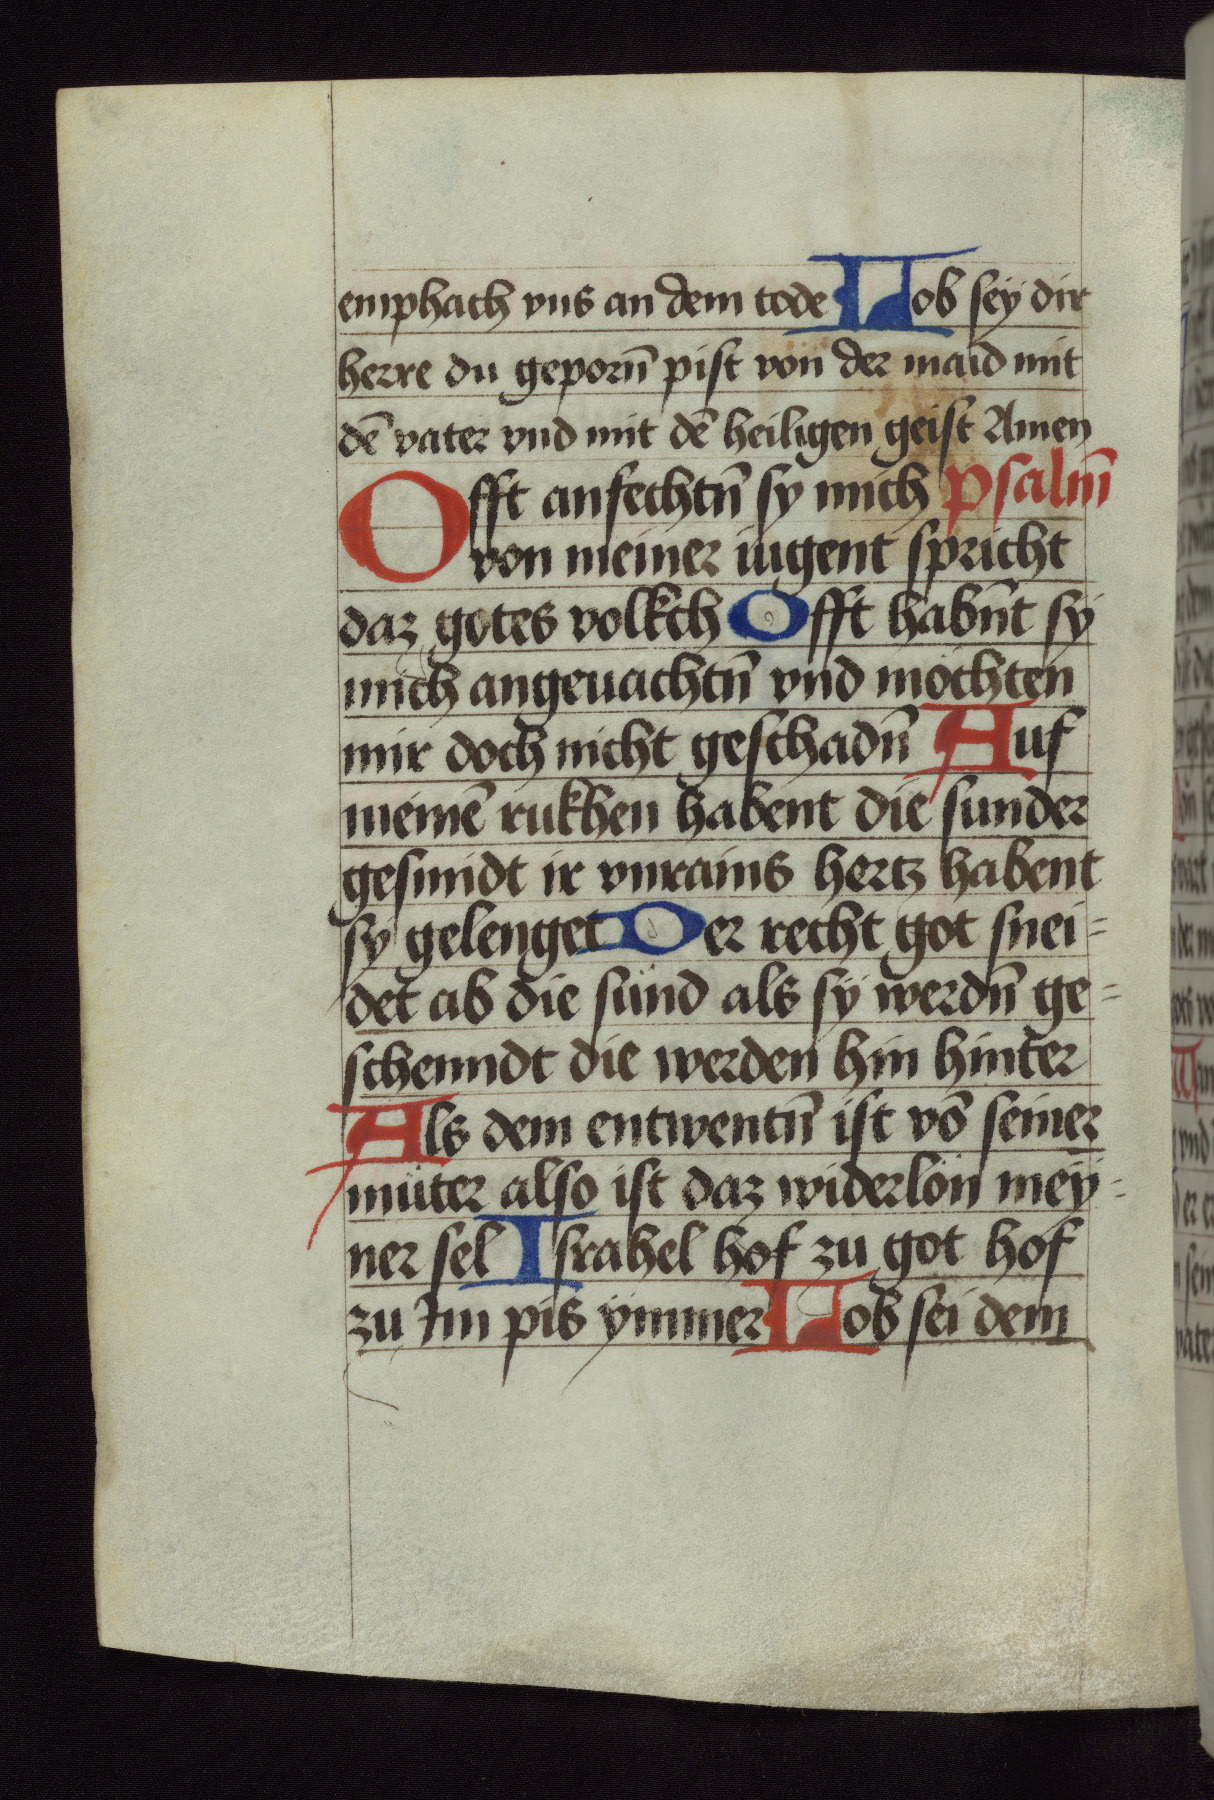 emphach vns an dem tode Lob sey dir
herre du geporn̄ pist von der maid mit
dē vater vnd mit dē heiligen geist Amen
Offt anfechtn̄ sy mich psalm̄
von meiner iugent spricht
daz gotes volkch Offt habn̄t sy
mich angeuachtn̄ vnd möchten
mir doch nicht geschadn̄ Auf
meinē rukhen habent die sunder
gesmidt ir vnrains hertz habent
sy gelenget Der recht got snei=
det ab die sünd als sÿ werdn̄ ge=
schenndt die werden hin hinter
Als dem entwentn̄ ist vō seiner
müter also ist daz widerlön mey=
ner sel Israhel hof zu got hof
zu Im pis ÿmmer Lob sei dem